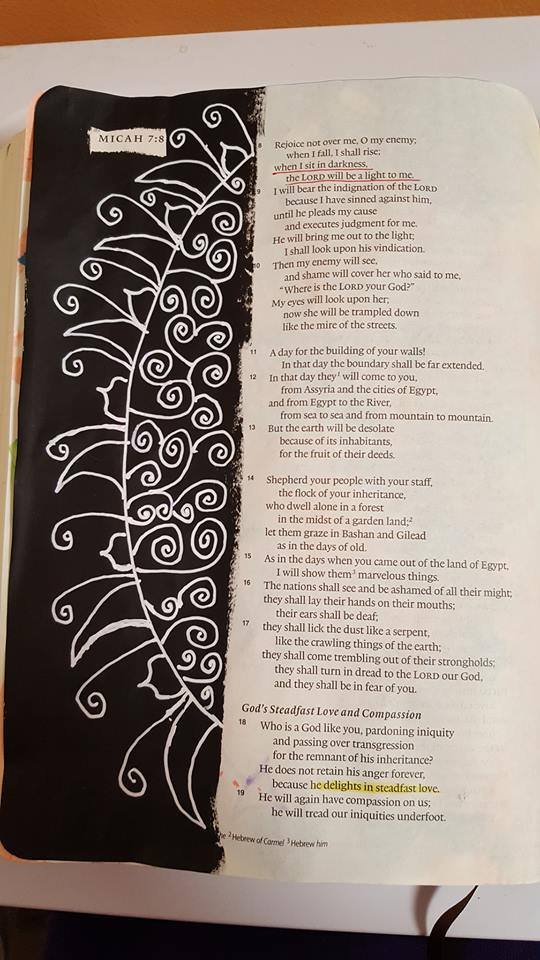 MICAH 7:8
8 Rejoice not over me, O my enemy;
when I fall, I shall rise;
when I sit in darkness,
the LORD will be a light to me.
9 I will bear the indignation of the LORD
because I have sinned against him,
until he pleads my cause
and executes judgment for me.
He will bring me out to the light;
I shall look upon his vindication.
10 Then my enemy will see,
and shame will cover her who said to me,
“Where is the LORD your God?”
My eyes will look upon her;
now she will be trampled down
like the mire of the streets.
11 A day for the building of your walls!
In that day the boundary shall be far extended.
12 In that day they¹ will come to you,
from Assyria and the cities of Egypt,
and from Egypt to the River,
from sea to sea and from mountain to mountain.
13 But the earth will be desolate
because of its inhabitants,
for the fruit of their deeds.
14 Shepherd your people with your staff,
the flock of your inheritance,
who dwell alone in a forest
in the midst of a garden land;²
let them graze in Bashan and Gilead
as in the days of old.
15 As in the days when you came out of the land of Egypt,
I will show them³ marvelous things.
16 The nations shall see and be ashamed of all their might;
they shall lay their hands on their mouths;
their ears shall be deaf;
17 they shall lick the dust like a serpent,
like the crawling things of the earth;
they shall come trembling out of their strongholds;
they shall turn in dread to the LORD our God,
and they shall be in fear of you.
God's Steadfast Love and Compassion
18 Who is a God like you, pardoning iniquity
and passing over transgression
for the remnant of his inheritance?
He does not retain his anger forever,
because he delights in steadfast love.
19 He will again have compassion on us;
he will tread our iniquities underfoot.
² Hebrew of Carmel ³ Hebrew him